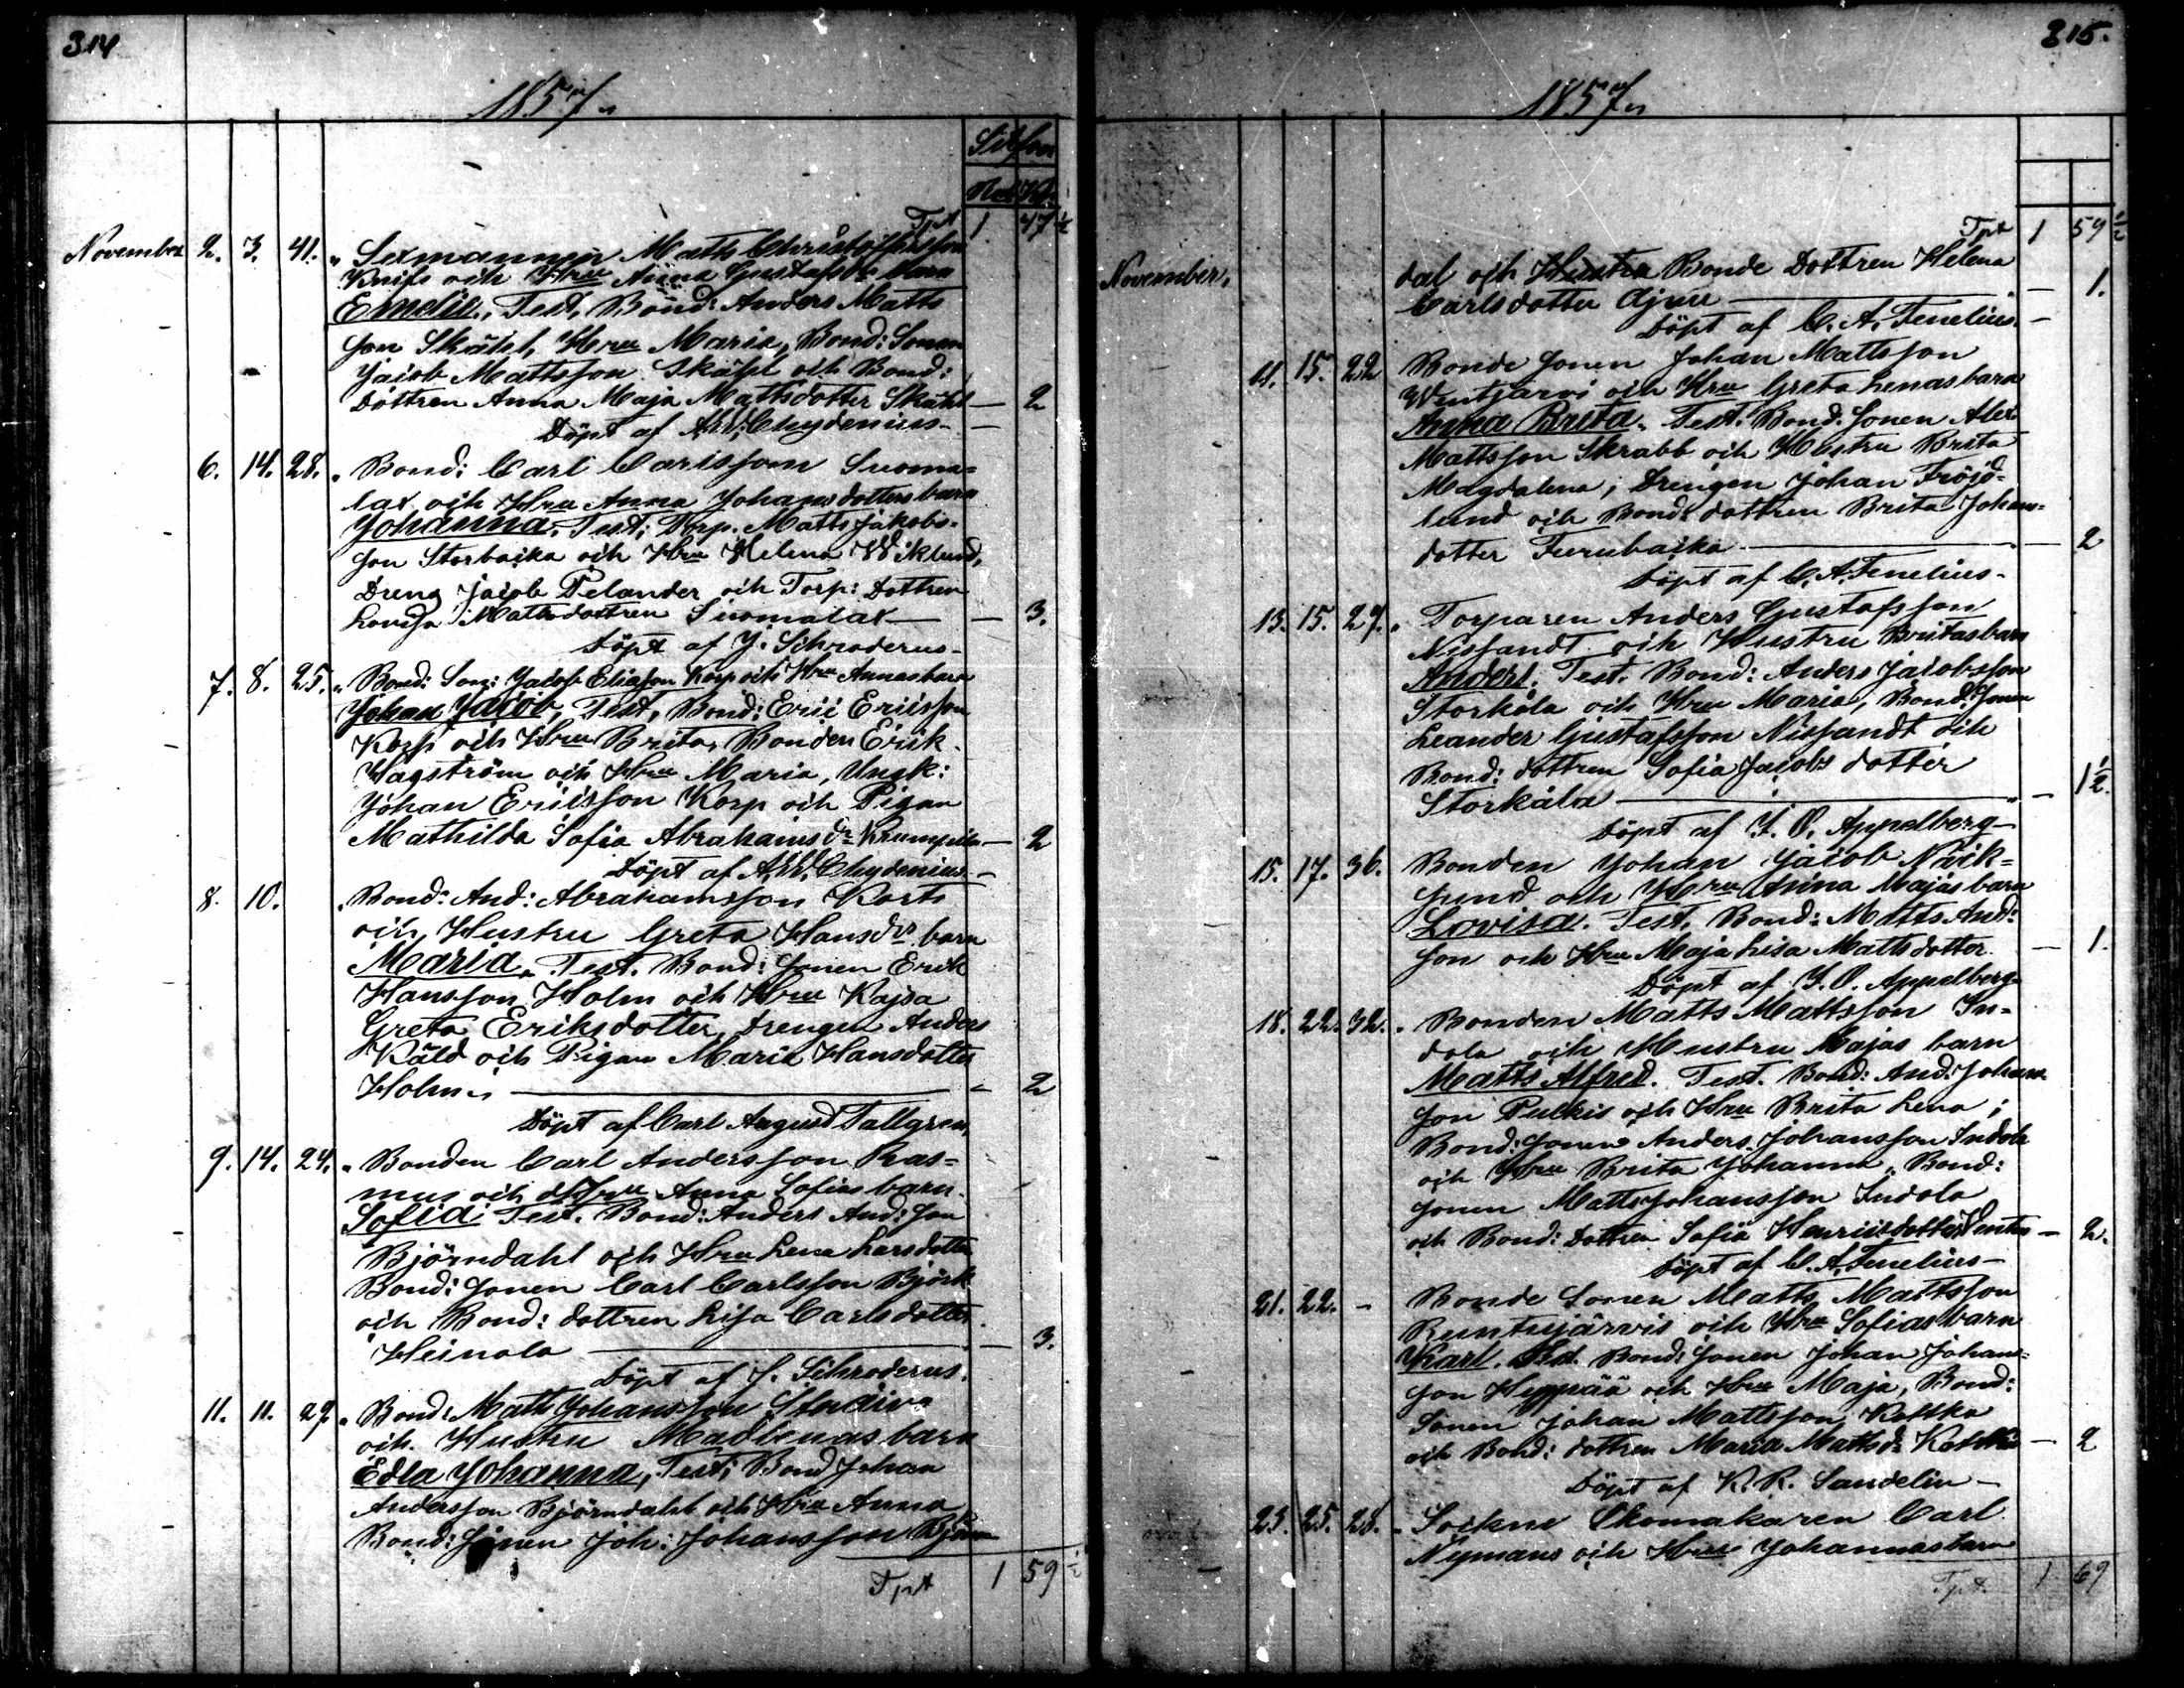 314
1857
Tpt 1 47 1/2
November 2. 3. 41. Sexmannen Matts Christoffersson
Knifs och Hru Anna Gustafsdr barn
Emelie. Test. Bond: Anders Matts
son Skåhl, Hru Maria, Bond: Sonen
Jacob Mattsson Skåhl och Bond:
Dottren Anna Maja Mattsdotter Skåhl — 2
Döpt af A.W. Chydenius —
6. 14. 28. Bond: Carl Carlsson Suoma=
lax och Hru Anna Johansdotters barn
Johanna. Test; Torp. Matts Jakobs=
son Storbacka och Hru Helena Wiklund,
Dreng Jacob Pelander och Torp: Dottren
Lovisa Mattsdottren Suomalax — 3.
Döpt af J. Schroderus —
7. 8. 25. Bond: Son: Jacob Eliasson Korp och Hru Annas barn
Johan Jacob, Test, Bond: Eric Ericsson
Korp och Hru Brita, Bonden Erik
Hagström och Hru Maria, Ungk:
Johan Ericsson Korp och Pigan
Mathilda Sofia Abrahamsdr — 2
Döpt af A.W. Chydenius —
8. 10. Bond: And: Abrahamsson Korts
och Hustru Greta Hansdrs barn
Maria. Test. Bond: Sonen Erik
Hansson Holm och Hru Kajsa
Greta Eriksdotter, Drengen Anders
Kåld och Pigan Maria Hansdotter
Holm — 2
Döpt af Carl August Tallgren
9. 14. 24. Bonden Carl Andersson Ras=
mus och Hru Anna Sofias barn
Sofia: Test. Bond: Anders And: son
Björndahl och Hru Lena Larsdotter
Bond: Sonen Carl Carlsson Björk
och Bond: dottren Lisa Carlsdotter
Heinola — 3.
Döpt af J. Schroderus.
11. 11. 27. Bond: Matts Johansson
och Hustru Madlenas barn
Edla Johanna, Test; Bond Johan
Andersson Björndahl och Hru Anna
Bond: Sonen Joh: Johansson Björn
Tpt 1 59 1/2
315.
1857
Tpt 1 59 1/2
November. dal och Hustru Bonde Dottren Helena
Carlsdotter — 1.
Döpt af C. A. Fenelius —
11. 15. 22 Bonde Sonen Johan Mattsson
Wintjärvi och Hru Greta Lenas barn
Anna Brita. Test: Bond: Sonen Alex
Mattsson Skrabb och Hustru Brita
Magdalena; Drengen Johan Fröjd=
lund och Bond: dottren Brita Johans=
dotter Furubacka — 2
Döpt af C. A. Fenelius —
13. 15. 27. Torparen Anders Gustafsson
Nissandt och Hustru Britas barn
Anders. Test. Bond: Anders Jacobsson
Storkåla och Hru Maria, Bond: Sonen
Leander Gustafsson Nissandt och
Bond: dottren Sofia Jacobs dotter
Storkåla — 1 1/2.
Döpt af J. O. Appelberg —
15. 17. 36. Bonden Johan Jacob Nävik=
sund och Hru Anna Majas barn
Lovisa. Test. Bond: Matts And:
son och Hru Maja Lisa Mattsdotter — 1.
Döpt af J. O. Appelberg
18. 22. 32. Bonden Matts Mattsson In=
dola och Hustru Majas barn
Matts Alfred. Test. Bond: And: Johans=
son Pulkis och Hru Brita Lena;
Bond: Sonen Anders Johansson Indola
och Hru Brita Johanna, Bond:
Sonen Matts Johansson Indola
och Bond: Dottren Sofia Henricsdotter — 2.
Döpt af C. A. Fenelius —
21. 22. — Bonde Sonen Matts Mattsson
Runtujärvis och Hru Sofias barn
Karl. Test. Bond: Sonen Johan Johans=
son Hyppää och Hru Maja, Bond:
Sonen Johan Mattsson Kottka
och Bond: dottren Maria Mattsdr Kottka — 2
Döpt af K. R. Sandelin —
23. 25. 28. Sockne Skomakaren Carl
Nymans och Hru Johannas barn
Tpt. 1 69